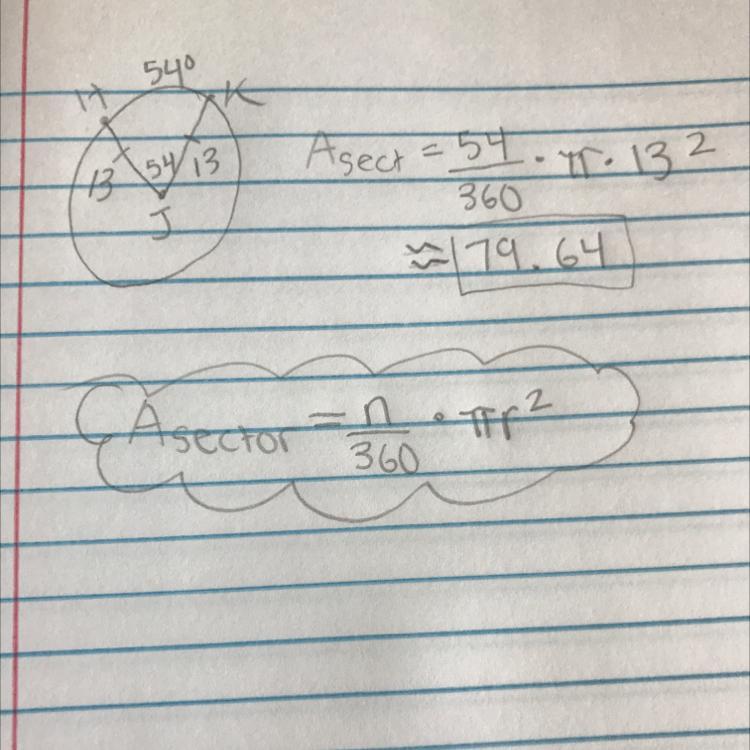 54°
H K
13 54 13
J
Asect = 54/360 · π · 13²
≈ 79.64
Asector = n/360 · πr²